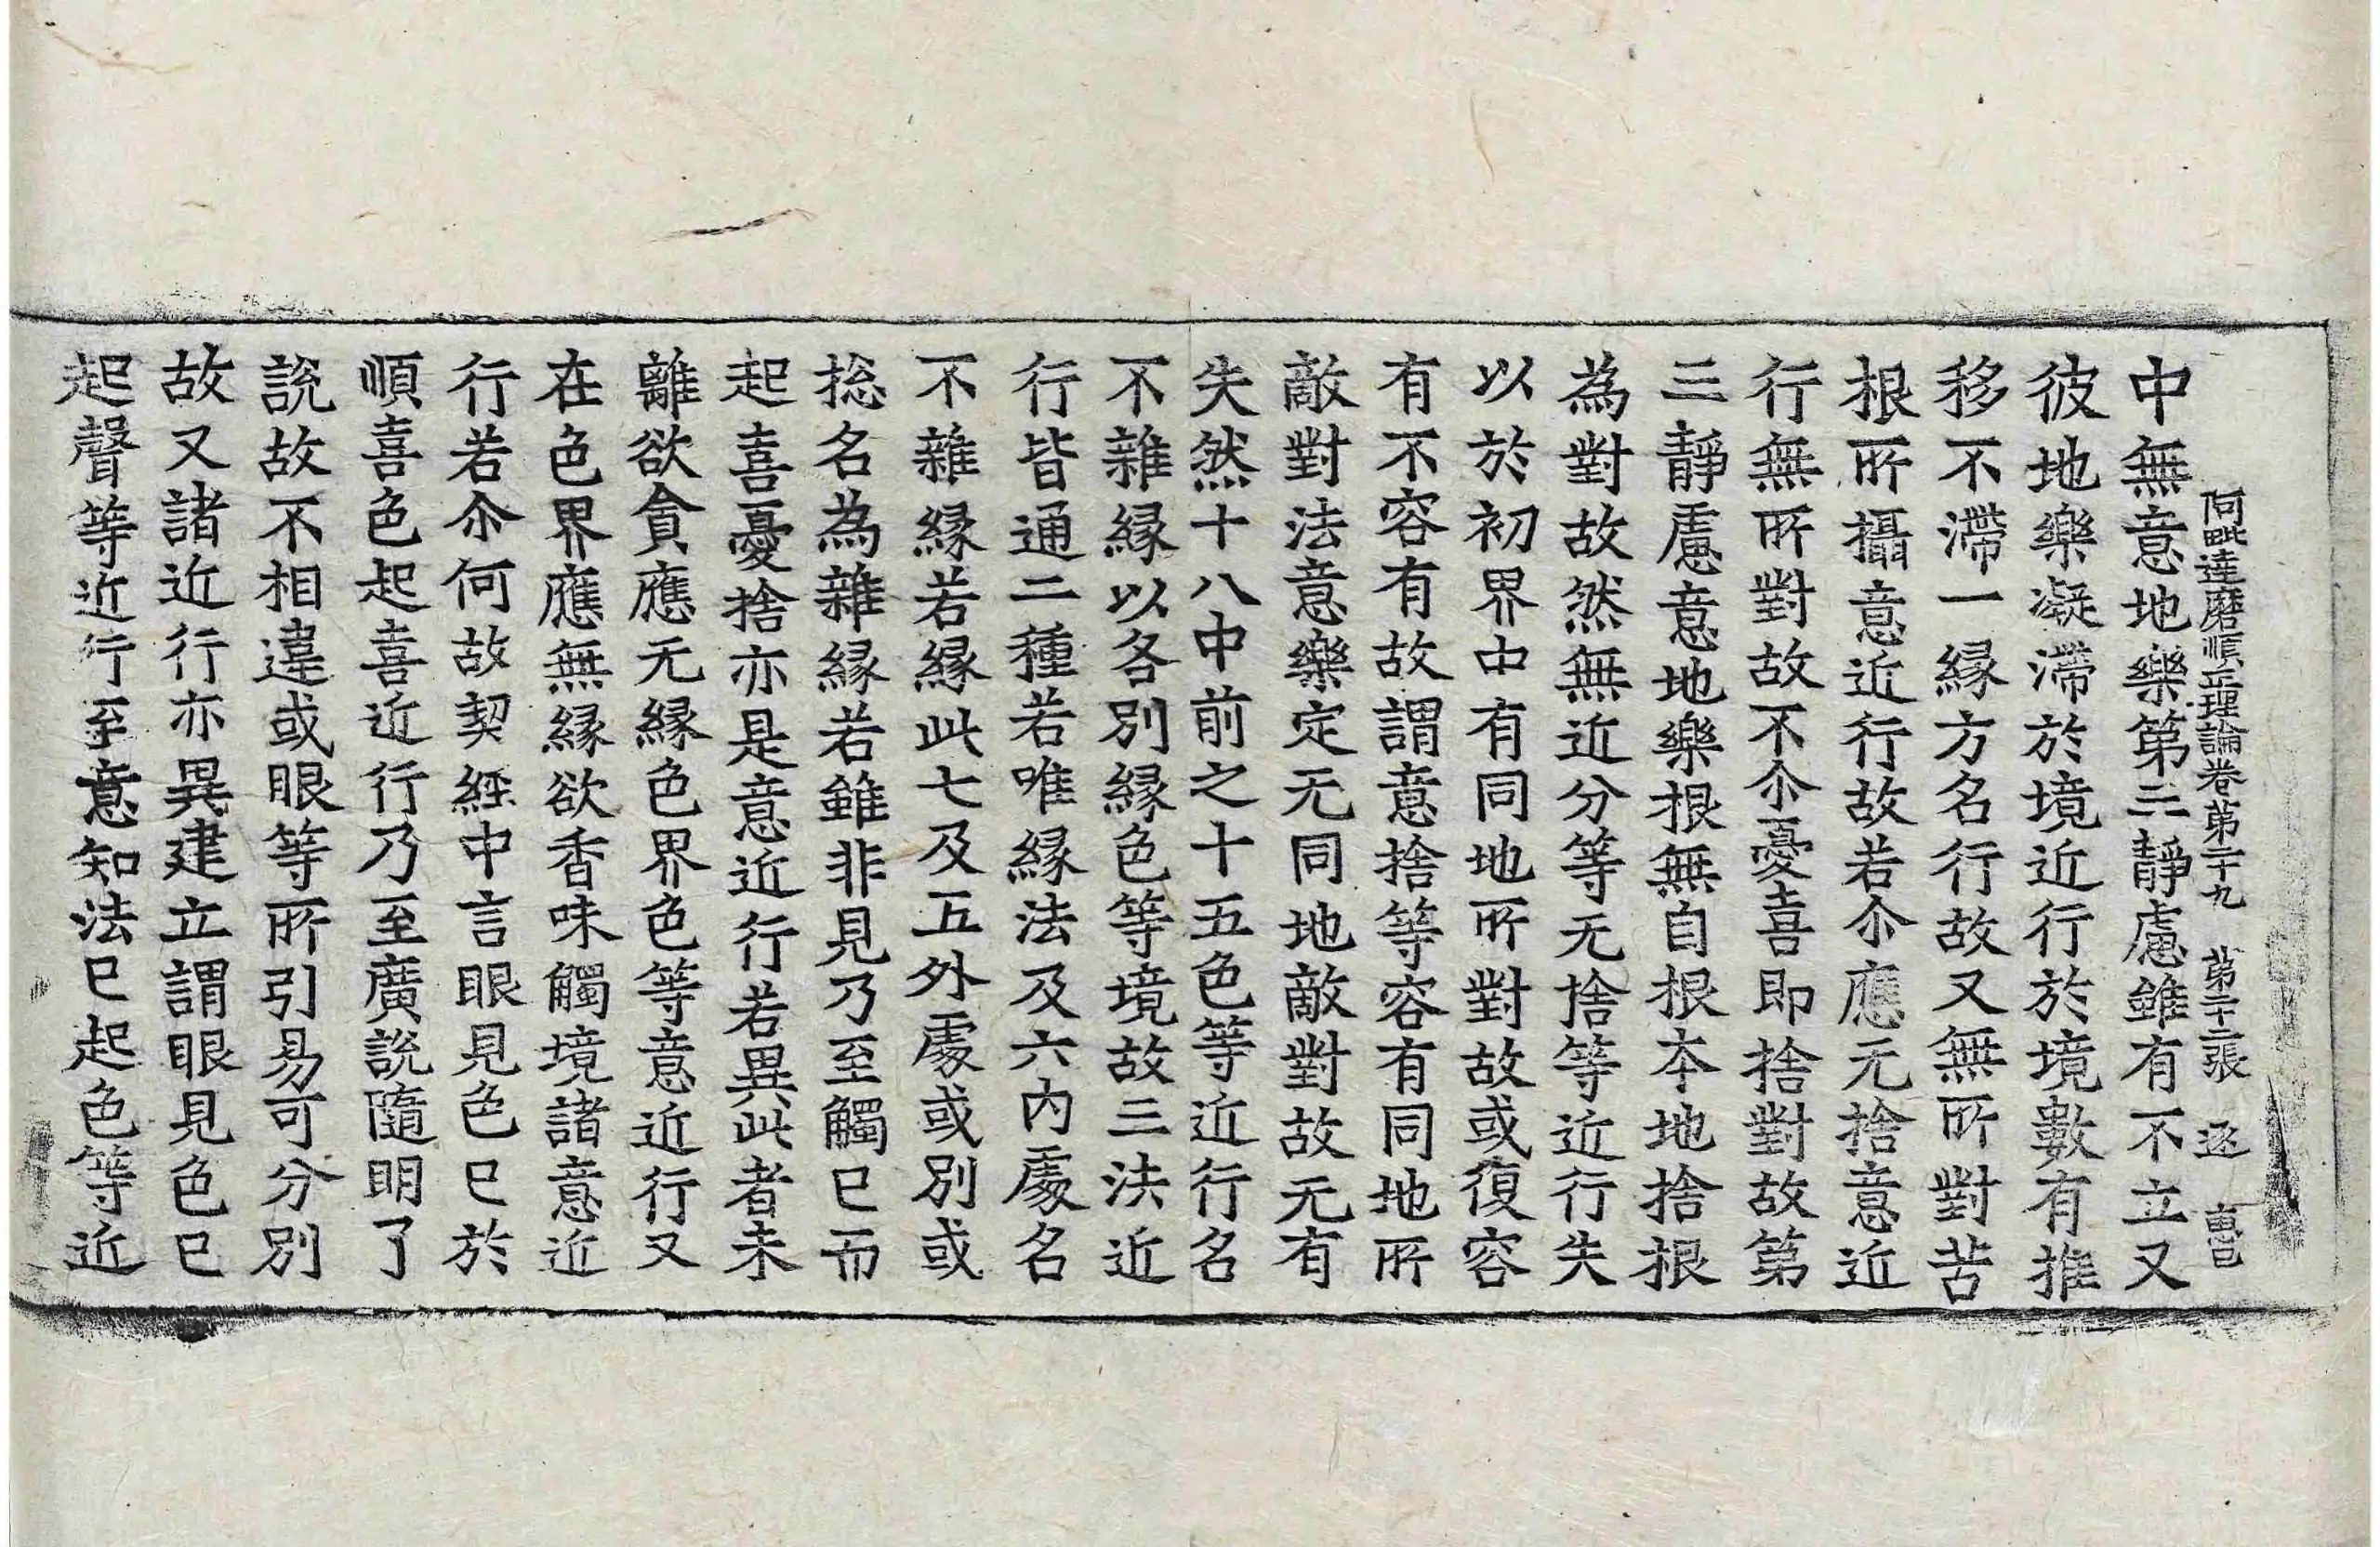 阿毗達磨順正理論卷第二十九 第二十二張 逐
中無意地樂第三靜慮雖有不立又
彼地樂凝滯於境近行於境數有推
移不滯一緣方名行故又無所對苦
根所攝意近行故若尒應无捨意近
行無所對故不尒憂喜即捨對故第
三靜慮意地樂根無自根本地捨根
為對故然無近分等无捨等近行失
以於初界中有同地所對故或復容
有不容有故謂意捨等容有同地所
敵對法意樂定无同地敵對故无有
失然十八中前之十五色等近行名
不雜緣以各別緣色等境故三法近
行皆通二種若唯緣法及六內處名
不雜緣若緣此七及五外處或別或
捴名為雜緣若雖非見乃至觸已而
起喜憂捨亦是意近行若異此者未
離欲貪應无緣色界色等意近行又
在色界應無緣欲香味觸境諸意近
行若尒何故契經中言眼見色已於
順喜色起喜近行乃至廣說隨明了
說故不相違或眼等所引易可分別
故又諸近行亦異建立謂眼見色已
起聲等近行至意知法已起色等近